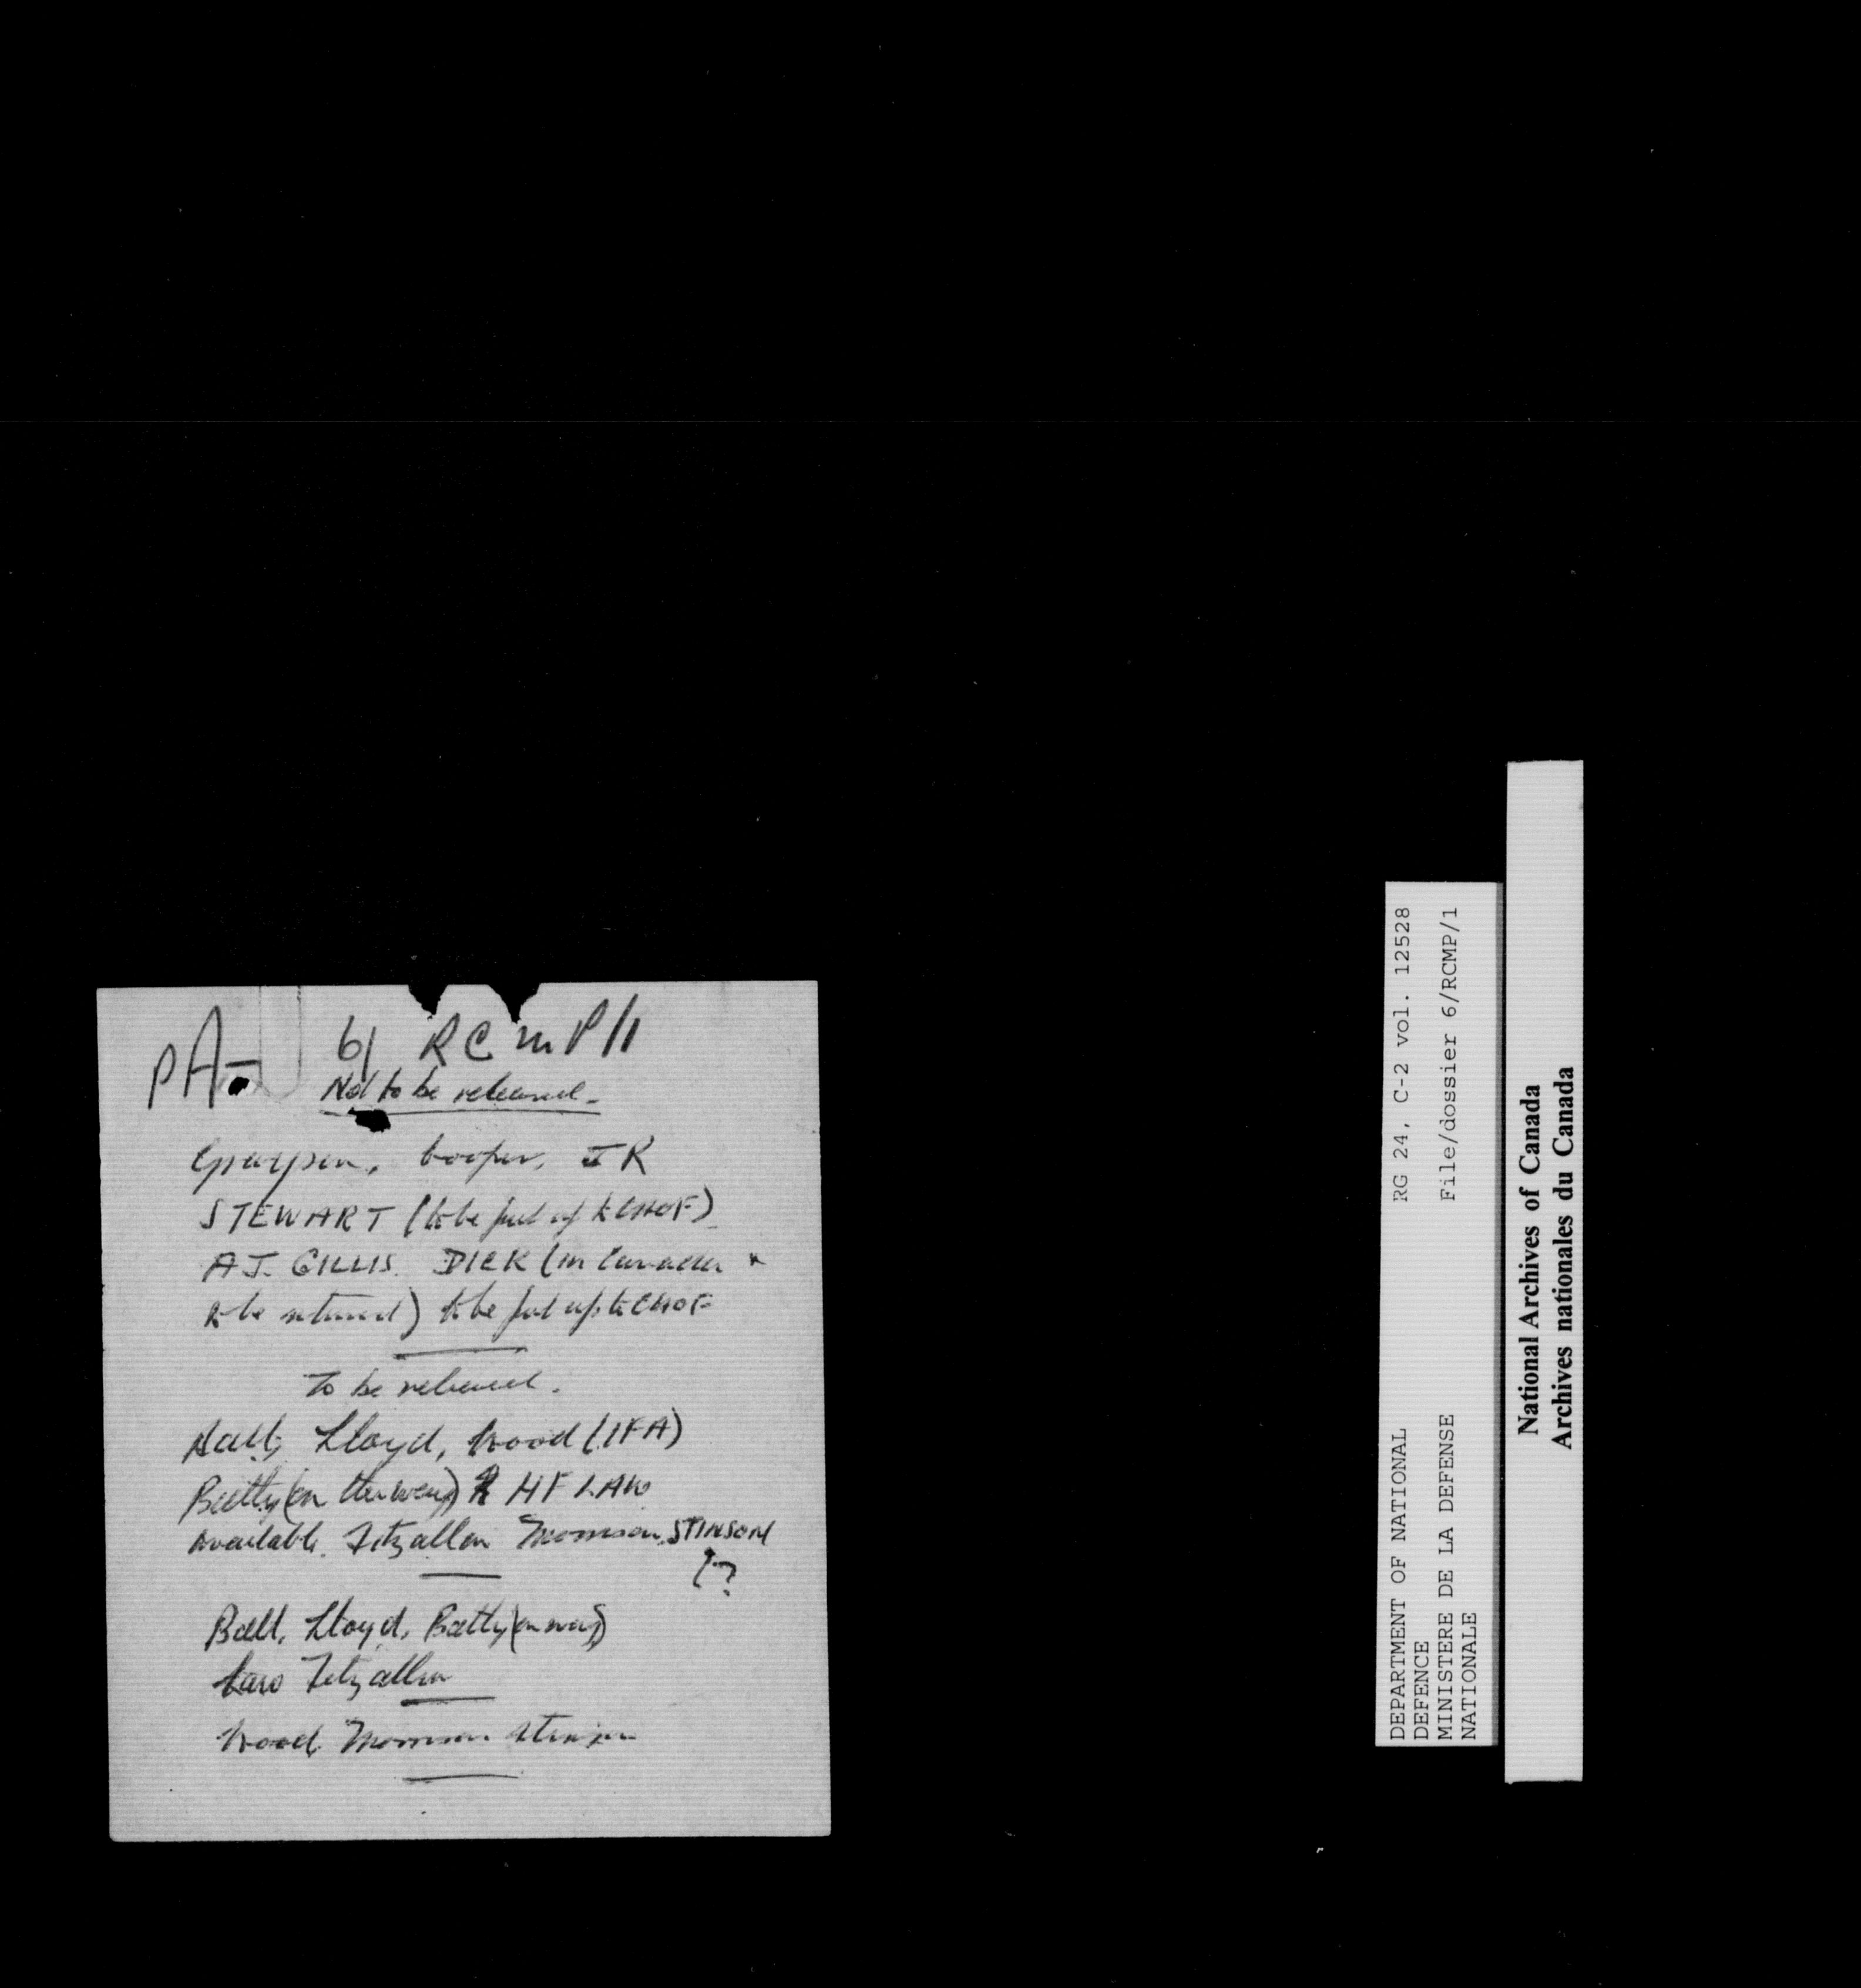 PA-
6/ RCMP/1
Not to be released-
Cooper, JR
STEWART (to be put up to CMHQ)
A.J. GILLIS. DICK (in Canada &
to be returned) to be put up to
To be released.
Lloyd, Wood (IFA)
Batty (on the way) HF LAW
Available. Fitzallen Morrison, STINSON
?
Ball, Lloyd, Batty (on way)
Law Fitzallen
Wood Morrison Stinson
DEPARTMENT OF NATIONAL RG 24, C-2 vol. 12528
DEFENCE
MINISTERE DE LA DEFENSE File/dossier 6/RCMP/1
NATIONALE
National Archives of Canada
Archives nationales du Canada